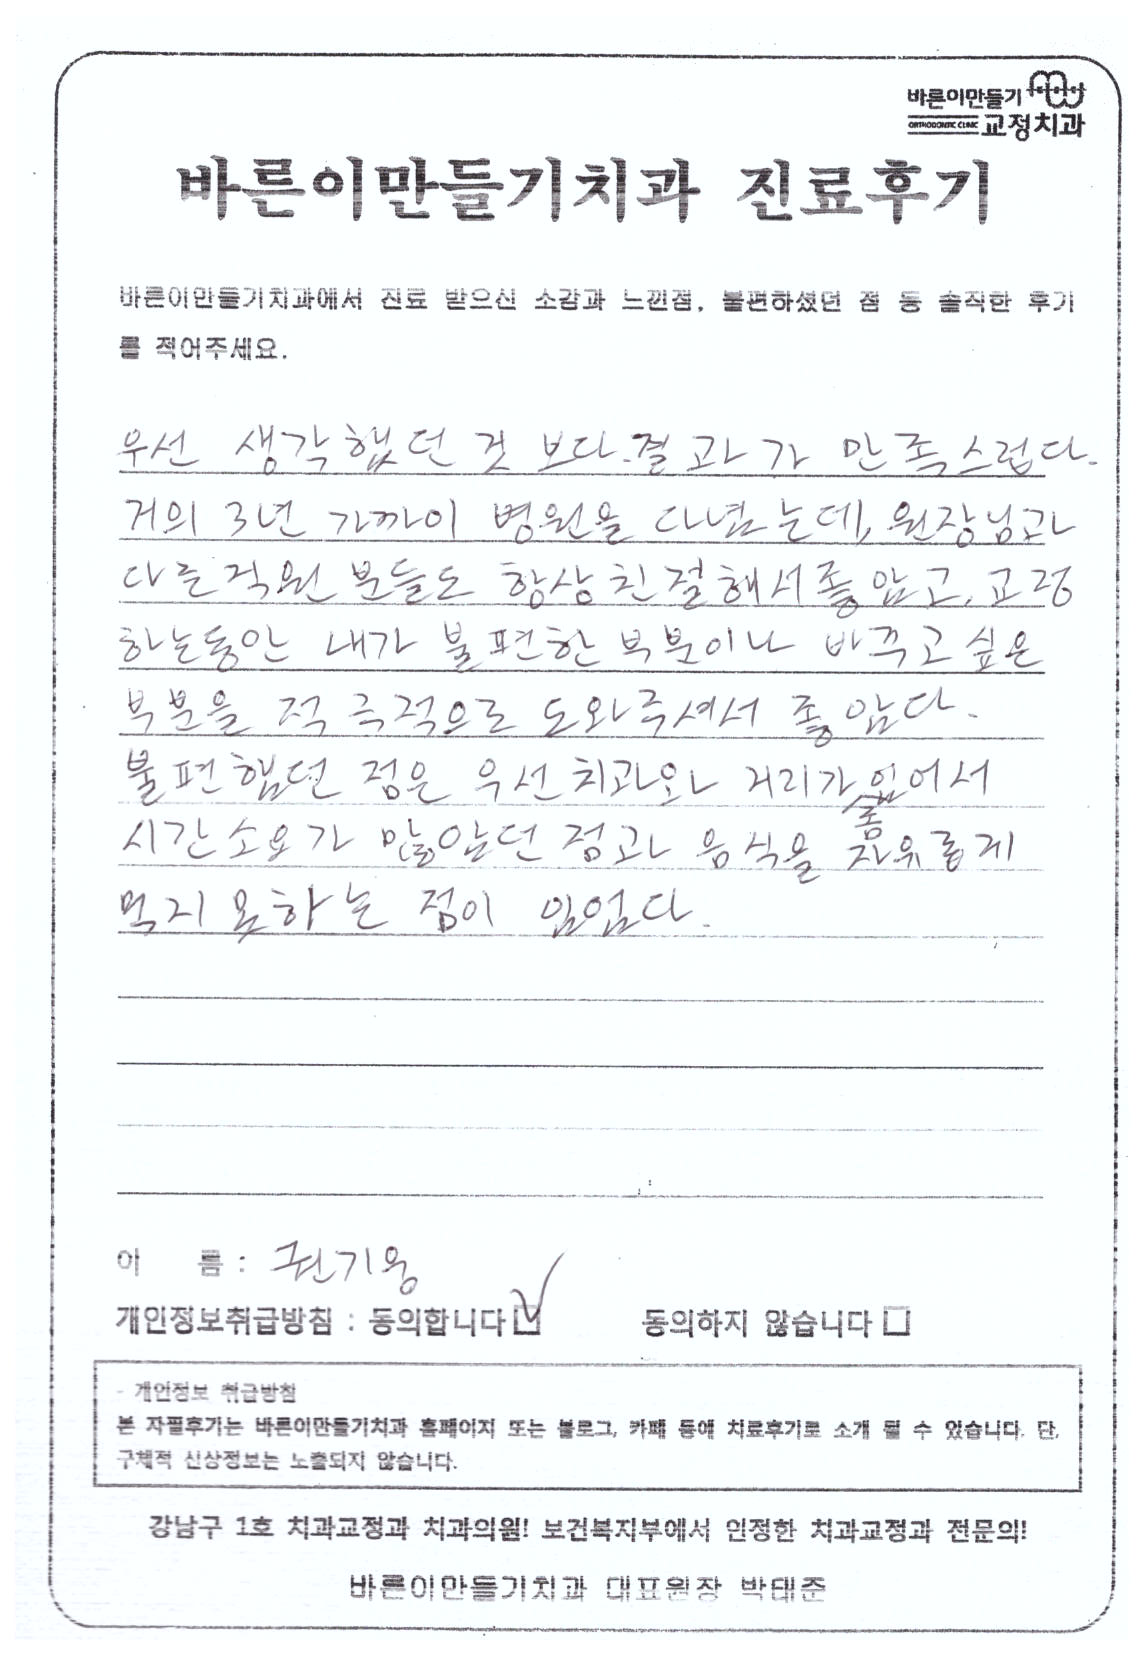 바른이만들기
ORTHODONTIC CLINIC 교정치과
바른이만들기치과 진료후기
바른이만들기치과에서 진료 받으신 소감과 느낀점, 불편하셨던 점 등 솔직한 후기
를 적어주세요.
우선 생각했던 것 보다 결과가 만족스럽다.
거의 3년 가까이 병원을 다녔는데, 원장님과
다른 직원 분들도 항상 친절해서 좋았고, 교정
하는동안 내가 불편한 부분이나 바꾸고 싶은
부분을 적극적으로 도와주셔서 좋았다.
불편했던 점은 우선 치과와 거리가 있어서
시간소요가 많았던 점과 음식을 좀 자유롭게
먹지 못하는 점이 있었다.
이 름 : 권기웅
개인정보취급방침 : 동의합니다 동의하지 않습니다
- 개인정보 취급방침
본 자필후기는 바른이만들기치과 홈페이지 또는 블로그, 카페 등에 치료후기로 소개 될 수 있습니다. 단,
구체적 신상정보는 노출되지 않습니다.
강남구 1호 치과교정과 치과의원! 보건복지부에서 인정한 치과교정과 전문의!
바른이만들기치과 대표원장 박태준